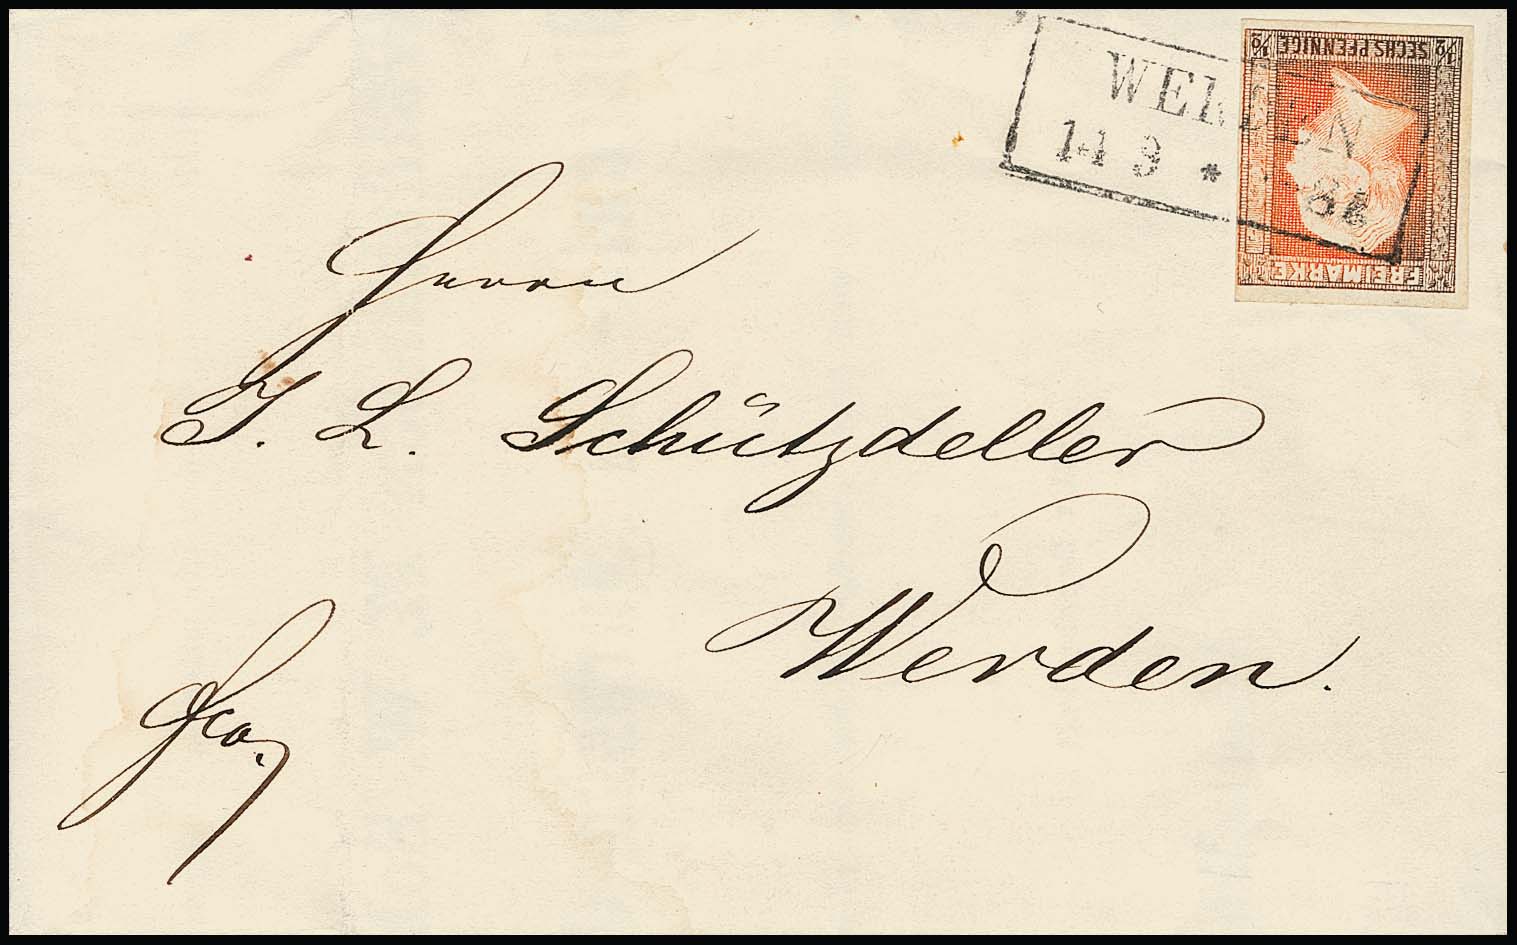 WERDEN
14 9 *
½ SECHS PFENNIGE ½
FREIMARKE
Herrn
J. L. Schützdeller
Werden.
fco.